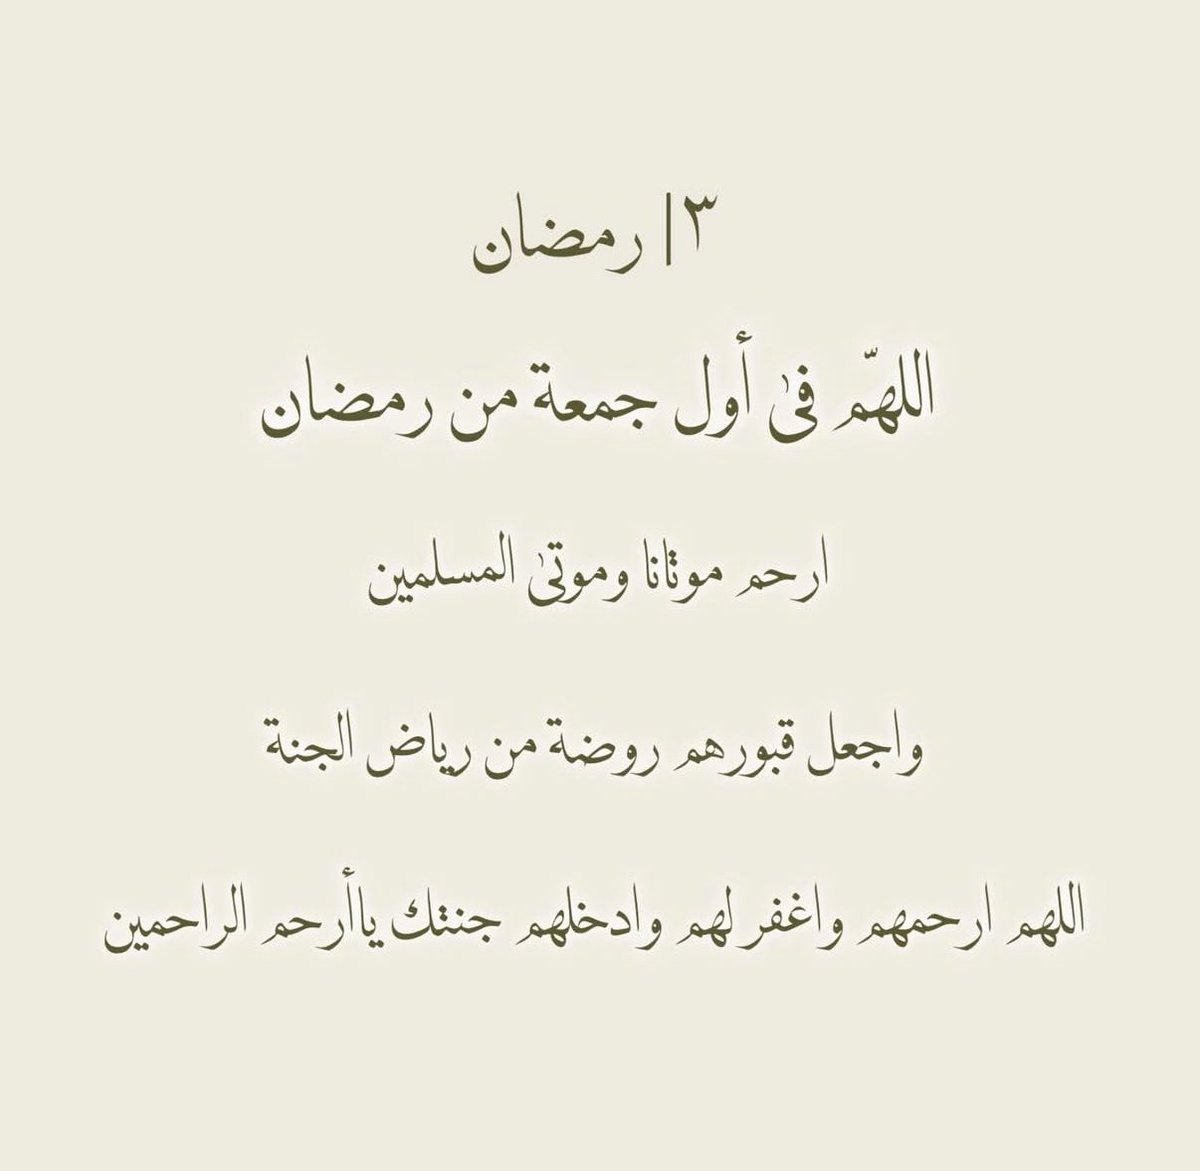 ٣| رمضان
اللهّم فىٰ أول جمعة من رمضان
ارحم موتانا وموتىٰ المسلمين
واجعل قبورهم روضة من رياض الجنة
اللهم ارحمهم واغفر لهم وادخلهم جنتك ياأرحم الراحمين